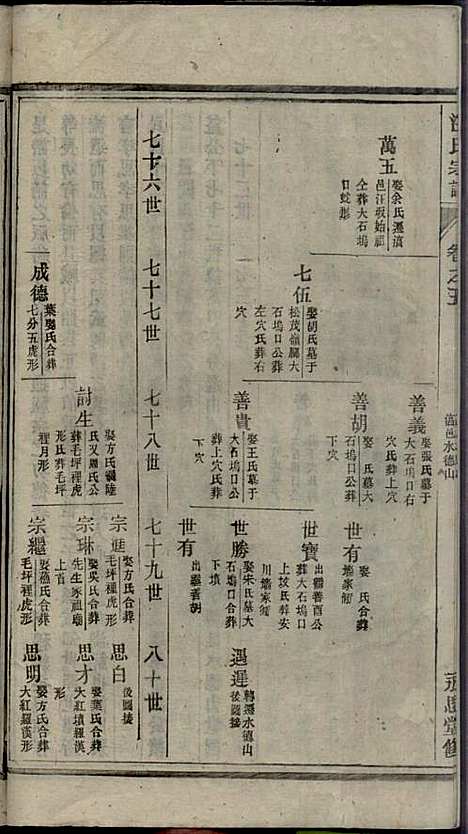 汪氏宗譜
卷之五
值邑水德山
永思堂修
萬五
娶余氏遷滇
邑汪坂始祖
仝葬大石塢
日蛇形
七伍
娶胡氏墓于
松茂嶺腳大
石塢口公葬
左穴氏葬右
穴
善義
娶張氏墓于
大石塢口右
穴氏葬上穴
善胡
娶 氏墓大
石塢口公葬
下穴
善貴
娶王氏墓于
大石塢口公
葬上穴氏葬
下穴
世有
娶 氏合葬
世寶
出繼善酉公
葬大石塢口
上坡氏葬安
世勝
娶宋氏墓大
石塢口合葬
下墳
世有
出繼善胡
遇遲
轉遷水德山
後圖接
七十六世
七十七世
七十八世
七十九世
八十世
成德
葉鄭氏合葬
七分五虎形
討生
娶方氏
氏又羅氏公
葬毛坪裡虎
形氏葬毛坪
裡月形
宗進
娶方氏合葬
毛坪裡虎形
宗琳
娶吳氏合葬
先生塚祖廟
上首
宗繼
毛坪裡虎形
思白
後圖接
思才
娶葉氏合葬
大紅墳羅漢
形
思明
娶方氏合葬
大紅羅漢形